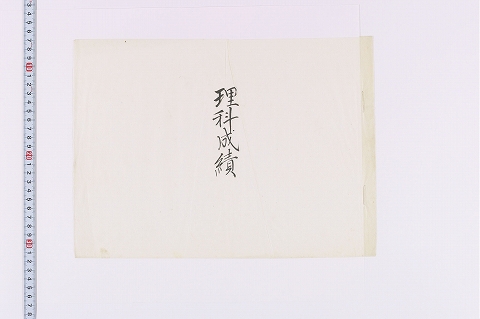 理科成績